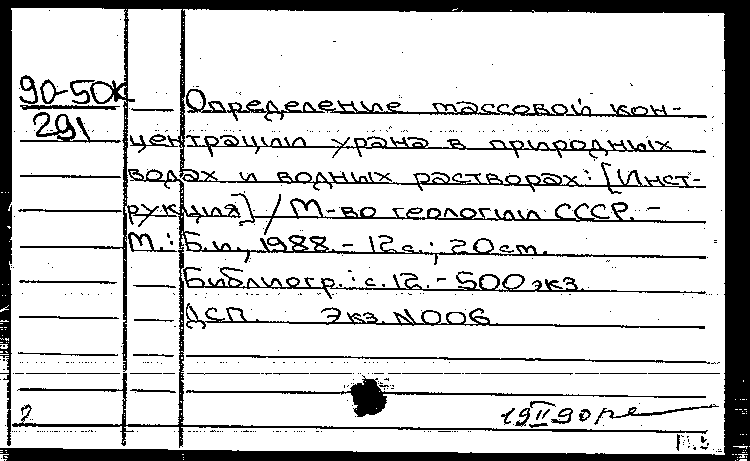 90-50к
291
Определение массовой кон-
центрации урана в природных
водах и водных растворах: [Инст-
рукция] / М-во геологии СССР. -
М.: Б.и., 1988. - 12с.; 20см.
Библиогр.: с.12. - 500экз.
ДСП. Экз. N006
2
19 II 90